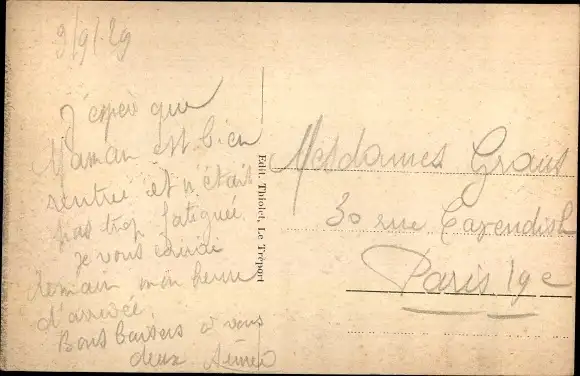 9/9/29
J'espère que
Maman est bien
rentrée et n'était
pas trop fatiguée
je vous écrirai
demain mon heure
d'arrivée.
Bons baisers à vous
deux Aimée
Edit. Thiolet, Le Tréport
Mesdames Graus
30 rue Cavendish
Paris 19e